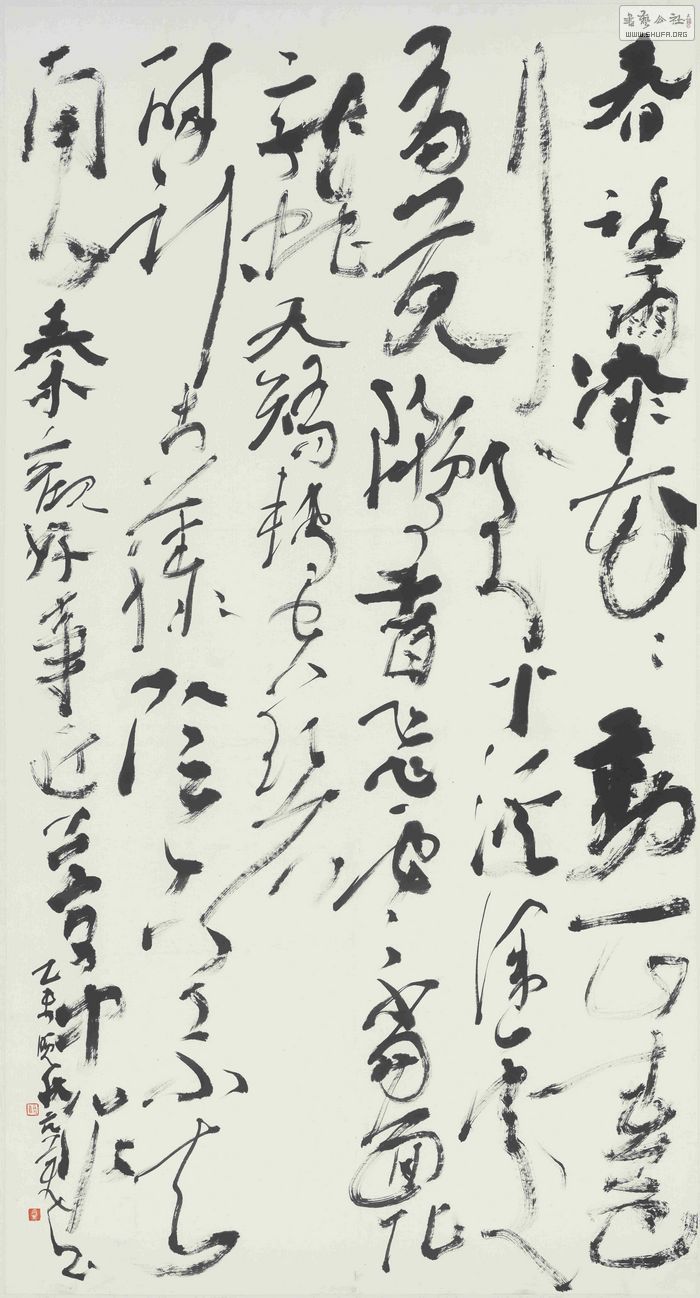 書藝公社
WWW.SHUFA.ORG
春路雨添花〻動一山春色
行到小溪深處
有黃鸝千百飛雲當面化
龍蛇夭矯轉空碧
醉卧古藤陰下了不知
南北秦觀好事近夢中作
乙未晚秋